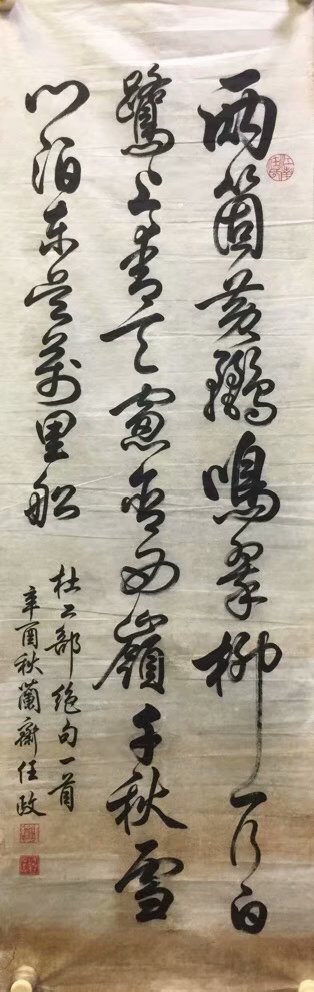 兩箇黃鸝鳴翠柳一行白
鷺上青天窗含西嶺千秋雪
門泊东吴萬里船
杜工部绝句一首
辛酉秋蘭齋任政